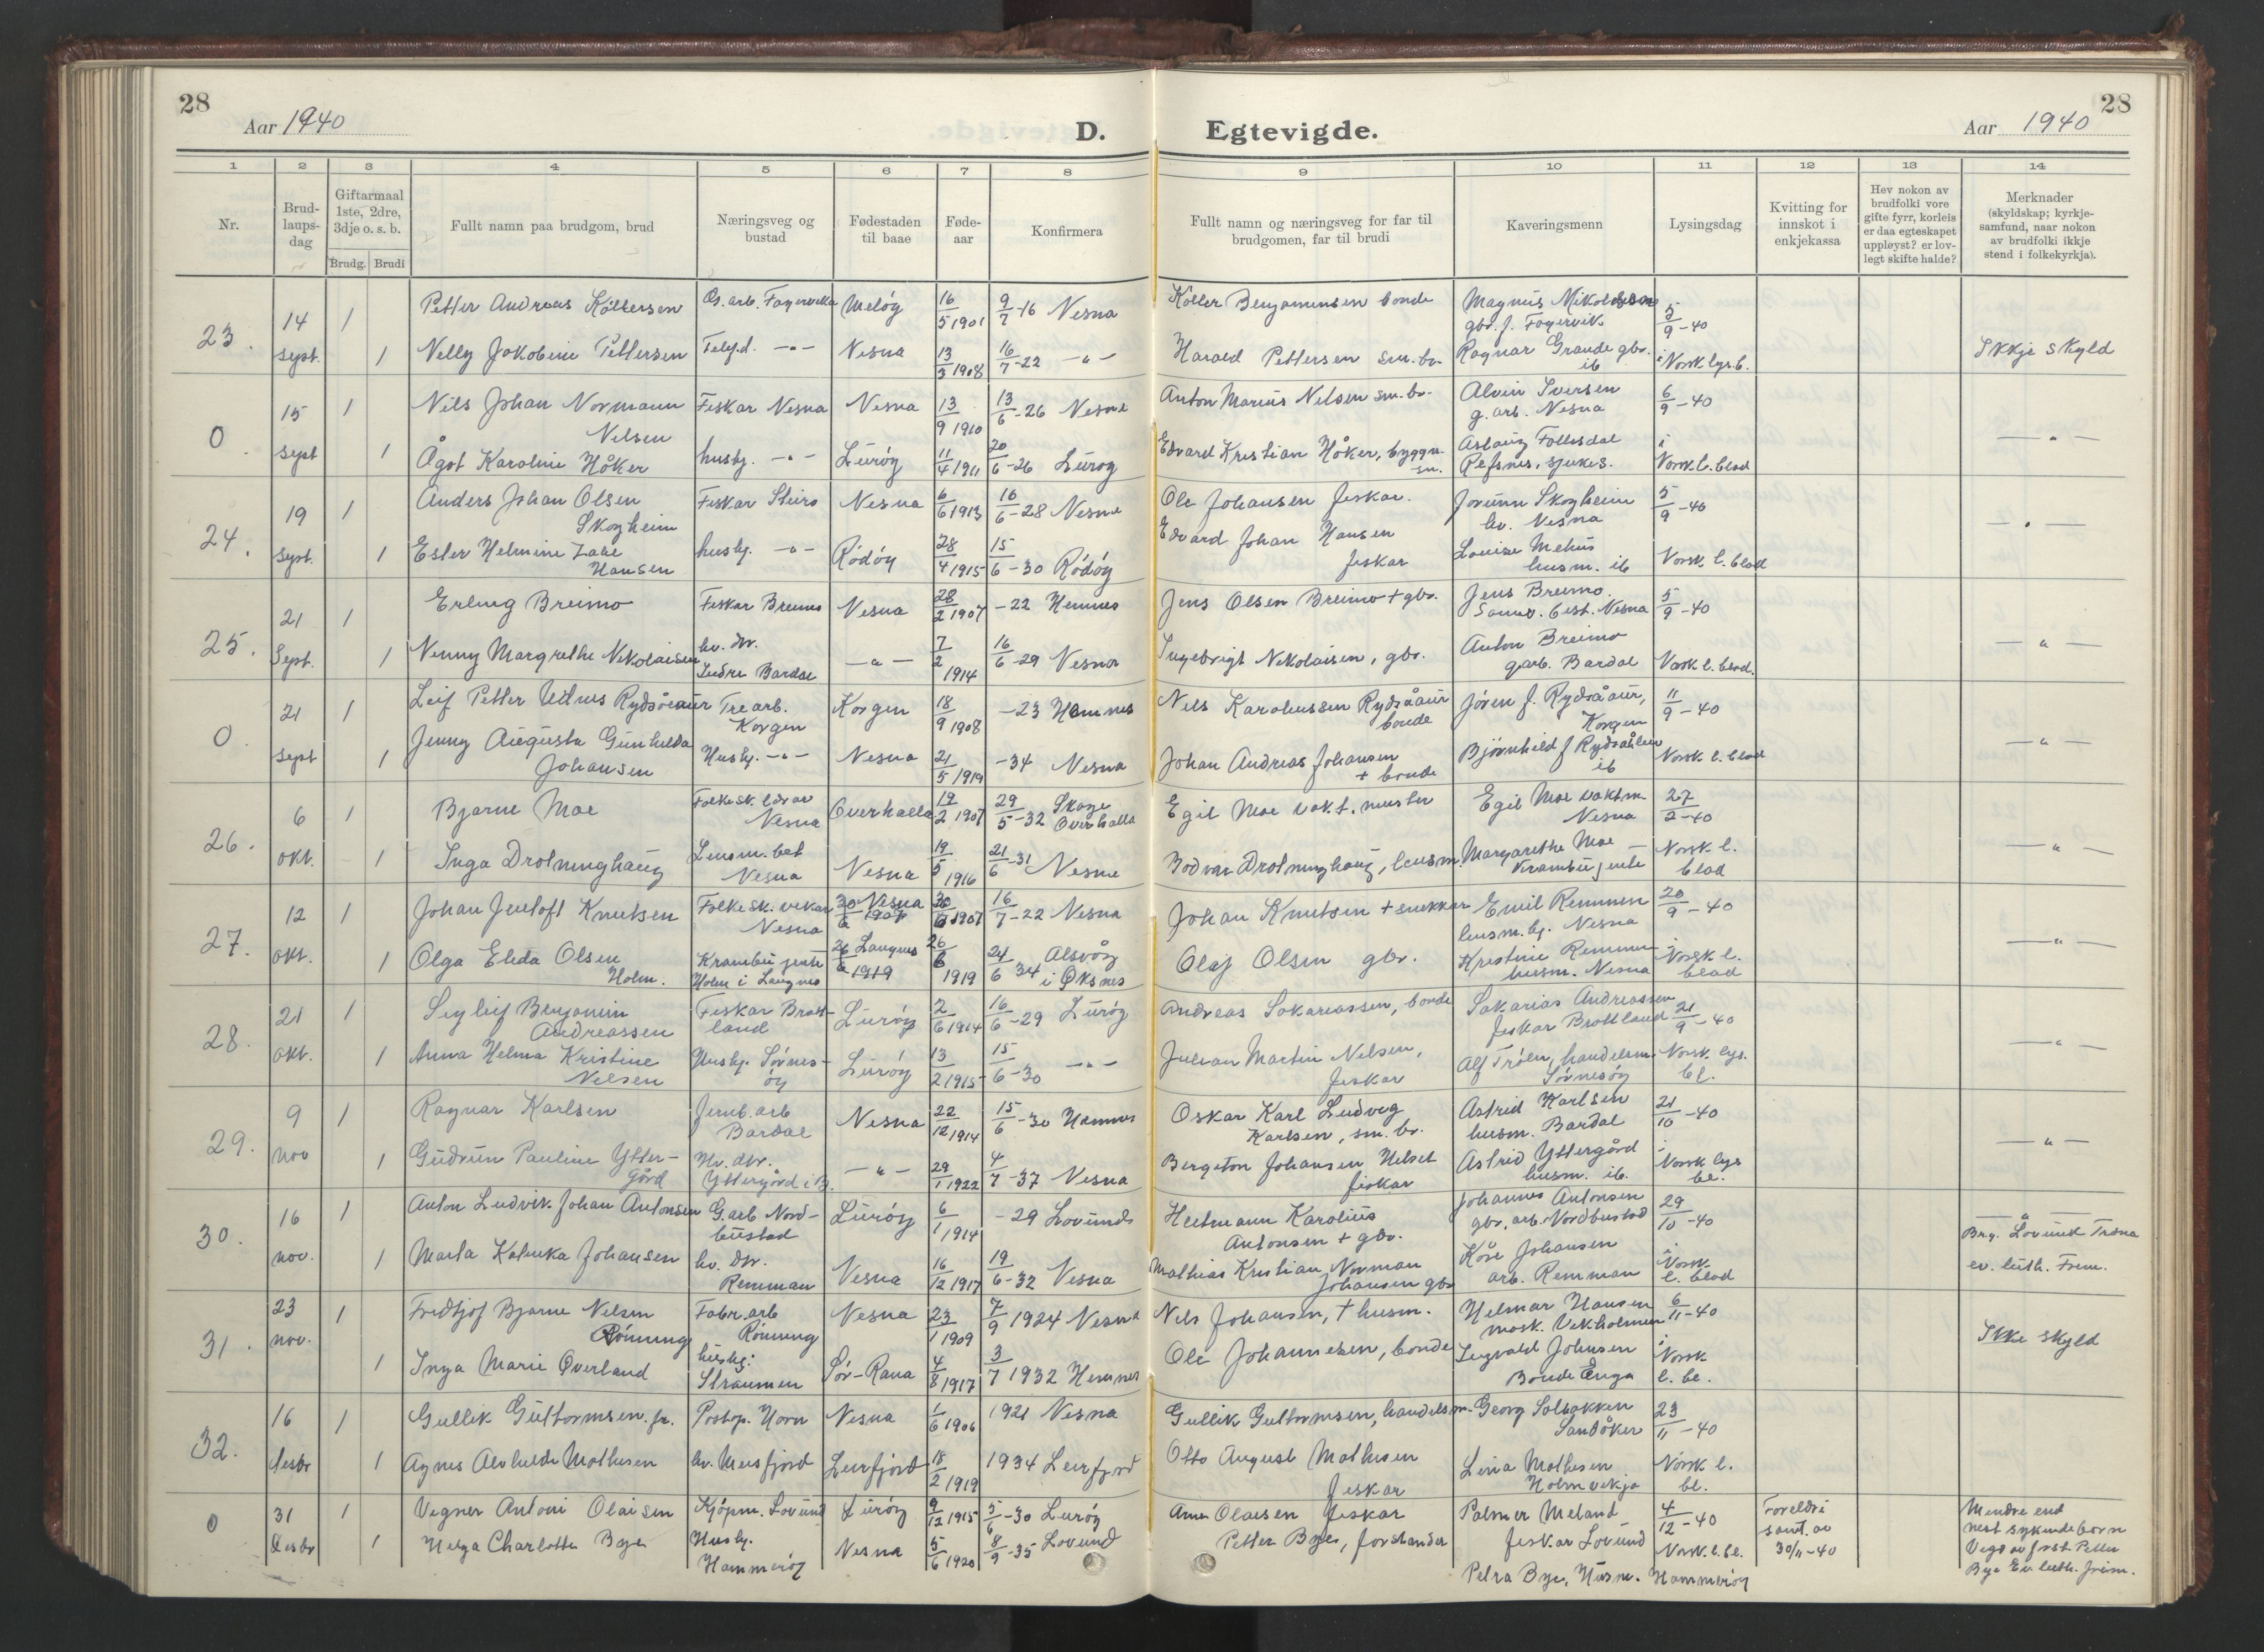 28
Aar 1940
D.
1 2 3 4 5 6 7 8
Nr.
Brud-
laups-
dag
Giftarmaal
1ste, 2dre,
3dje o. s. b.
Brudg. Brudi
Fullt namn paa brudgom, brud
Næringsveg og
bustad
Fødestaden
til baae
Føde-
aar
Konfirmera
23. 14 1 Petter Andreas Kóllersen Meløy 16/5 1901 9/7-16 Nesna
sept. 1 Nelly Jakobine Pettersen Nesna 13/3 1908 16/7-22 -"-
0 15 1 Nils Johan Normann Fiskar Nesna Nesna 13/9 1910 13/6-26 Nesna
Nelsen
sept 1 Ågot Karoline Håker husbj. -"- Lurøy 11/4 1911 20/6-26 Lurøy
24. 19 1 Anders Johan Olsen Fiskar Nesna 6/6 1913 16/6-28 Nesna
Skogheim
sept. 1 Ester Helmine husbj. -"- Rødøy 28/4 1915 15/6-30 Rødøy
Hansen
25. 21 1 Erling Breimo Fiskar Breimo Nesna 28/2 1907 -22 Hemnes
Sept. 1 Nenny Margrethe Nikolaisen -"- 7/2 1914 16/6-29 Nesna
Indre Bardal
0 21 1 Leif Petter Rydsåaur Trearb. Korgen 18/9 1908 -23 Hemnes
Korgen
sept 1 Jenny Augusta Gunhilda Husbj. -"- Nesna 21/5 1919 -34 Nesna
Johansen
26. 6 1 Bjarne Moe Folkesk. lærar Overhalla 19/2 1907 29/5-32 Skage
Nesna Overhalla
okt. 1 Inga Drotninghaug Lensm.bet Nesna 19/5 1916 21/6-31 Nesna
Nesna
27. 12 1 Johan Jentoft Knutsen Folkesk. vikar 30/6 Nesna 1907 30/6 1907 16/7-22 Nesna
Nesna
okt. 1 Olga Elida Olsen Krambujente 26/6 Langnes 1919 26/6 1919 24/6 34 Alsvåg
Holm. Holm i Langnes i Øksnes
28. 21 1 Sigleif Benjamin Fiskar Bratt- Lurøy 2/6 1914 16/6-29 Lurøy
Andreassen land
okt. 1 Anna Helma Kristine Husbj. Sørnes- Lurøy 13/2 1915 15/6-30 -"-
Nelsen øy
29. 9 1 Ragnar Karlsen Jernb.arb Nesna 22/12 1914 15/6-30 Hemnes
Bardal
nov 1 Gudrun Pauline Ytter- -"- 29/1 1922 4/7-37 Nesna
gård Yttergård i B.
30. 16 1 Anton Ludvik Johan Antonsen G.arb Nord- Lurøy 6/1 1914 -29 Lovund
bustad
nov. 1 Marta Katinka Johansen Nesna 16/12 1917 19/6-32 Nesna
Remman
31. 23 1 Fridtjof Bjarne Nelsen Fabr.arb Nesna 23/1 1909 7/9 1924 Nesna
nov. Rönning Rönning
1 Inga Marie Øverland husbj: Sør-Rana 4/8 1917 3/7 1932 Hemnes
Straumen
32. 16 1 Gullik Guttormsen jr. Postop. Horn Nesna 1/6 1906 1921 Nesna
desbr 1 Agnes Alvhilde Mathisen hv. Meisfjord Leirfjord 18/2 1919 1934 Leirfjord
0 31 1 Vigner Antoni Olaisen Kjöpm. Lovund Lurøy 9/12 1915 5/6-30 Lurøy
Desbr 1 Helga Charlotte Bye Husbj. Nesna 5/6 1920 8/9-35 Lovund
Hammerøy
28
Egtevigde.
Aar 1940
9 10 11 12 13 14
Fullt namn og næringsveg for far til
brudgomen, far til brudi
Kaveringsmenn
Lysingsdag
Kvitting for
innskot i
enkjekassa
Hev nokon av
brudfolki vore
gifte fyrr, korleis
er daa egteskapet
uppløyst? er lov-
legt skifte halde?
Merknader
(skyldskap; kyrkje-
samfund, naar nokon
av brudfolki ikkje
stend i folkekyrkja).
Köller Benjaminsen bonde Magnus Mikolsen 5/9-40
gbr. f. Fagervik
Harald Pettersen sm.br. Ragnar Grande gbr. i Norsk lys.b. Ikkje skyld
ib
Anton Marius Nelsen sm.br. Alvin Iversen 6/9-40
g.arb. Nesna
Edvard Kristian Håker, byggn- Aslaug Follesdal i -"-
sn. Refsnes, sjukes. Norsk l. blad
Ole Johansen fiskar. Jorunn Skogheim 5/9-40
hv. Nesna
Edvard Johan Hansen Louise Mehus -"-
fiskar husm. ib Norsk. l. blad
Jens Olsen Breimo + gbr. Jens Breimo 5/9-40
best. Nesna
Ingebrigt Nikolaisen, gbr. Anton Breimo -"-
g.arb. Bardal Norsk l. blad.
Nils Karoliussen Rydsåaur Jøren J. Rydsåaur, 11/9-40
bonde Korgen
Johan Andreas Johansen Bjørnhild J Norsk l. blad -"-
+ bonde ib
Egil Moe vakt.mester Egil Moe vaktm 27/2-40
Nesna
Bodvar Drotninghaug, lensm. Margarethe Moe Norsk l. -"-
krambujente blad
Johan Knutsen + snekkar Emil Remmen 20/9-40
lensm.bj. Nesna
Olaf Olsen gbr. Kristine Remmen Norsk l. -"-
husm. Nesna blad
Andreas Sakariassen, bonde Sakarias Andreassen 21/9-40
fiskar Brattland
Julian Martin Nelsen, Alf Tröen, handelsm. Norsk lys. -"-
fiskar Sørnesøy bl.
Oskar Karl Ludvig Astrid Karlsen 21/10-40
Karlsen, sm. br. husm. Bardal
Bergeton Johansen Helset Astrid Yttergård Norsk lys -"-
fiskar husm. ib. bl.
Heitmann Karolius Johannes Antonsen 29/10-40
Antonsen + gbr. gbr. arb. Nordbustad -"-
Brg. Lovund Træna
Mathias Kristian Norman Kåre Johansen i Norsk ev. luth. Frim.
Johansen gbr arb. Remman l. blad
Nils Johansen, + husm. Helmar Hansen 6/11-40
mask. Vikholmen
Ole Johannesen, bonde Sigvald Johnsen i Norsk Ikke skyld
Bonde Enga l. bl.
Gullik Guttormsen, handelsm. Georg Solbakken 23/11-40
Sandåker
Otto August Mathisen Lina Mathisen Norsk l.
fiskar Holmvikja bl.
Arne Olaisen fiskar Palmer Meland 4/12-40 Foreldri Mindre end
Petter Bye, forstander fiskar Lovund Norsk l. bl. samt. av nest sykendeborn
30/11-40 Vigd av frst. Petter
Petra Bye, Husm. Hammerøy Bye Ev. luth. frim.